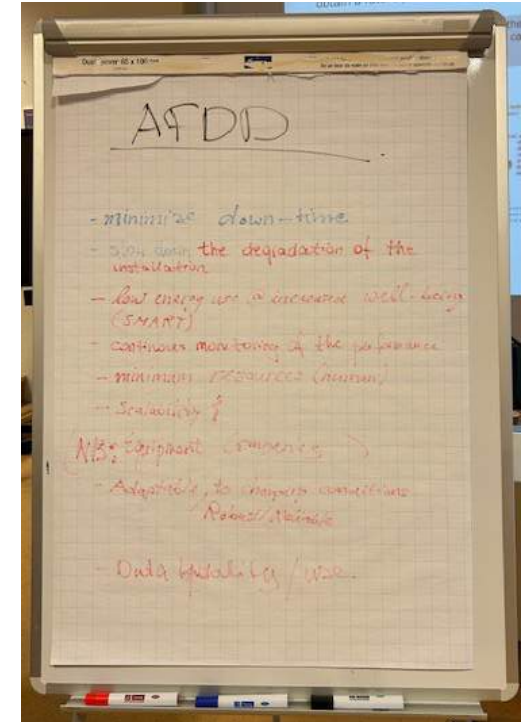 AFDD
- minimize down-time
- slow down the degradation of the
installation
- low energy use @ increased well-being
(SMART)
- continous monitoring of the performance
- minimum resources (human)
- Scalability
NB: Equipment
- Adaptable, to changing conditions
Robust/
- Data quality / use.